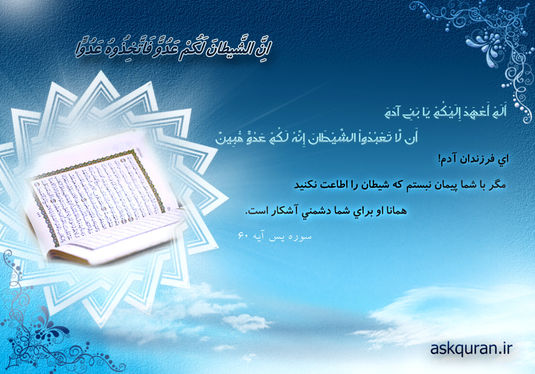 اِنَّ الشَّيطانَ لَكُمْ عَدُوٌّ فَاتَّخِذُوهُ عَدُوًّا
أَلَمْ أَعْهَدْ إِلَيْكُمْ يَا بَنِي آدَمَ
أَن لَّا تَعْبُدُوا الشَّيْطَانَ إِنَّهُ لَكُمْ عَدُوٌّ مُّبِينٌ
اي فرزندان آدم!
مگر با شما پيمان نبستم كه شيطان را اطاعت نكنيد
همانا او براي شما دشمني آشكار است.
سوره يس آيه ۶۰
askquran.ir